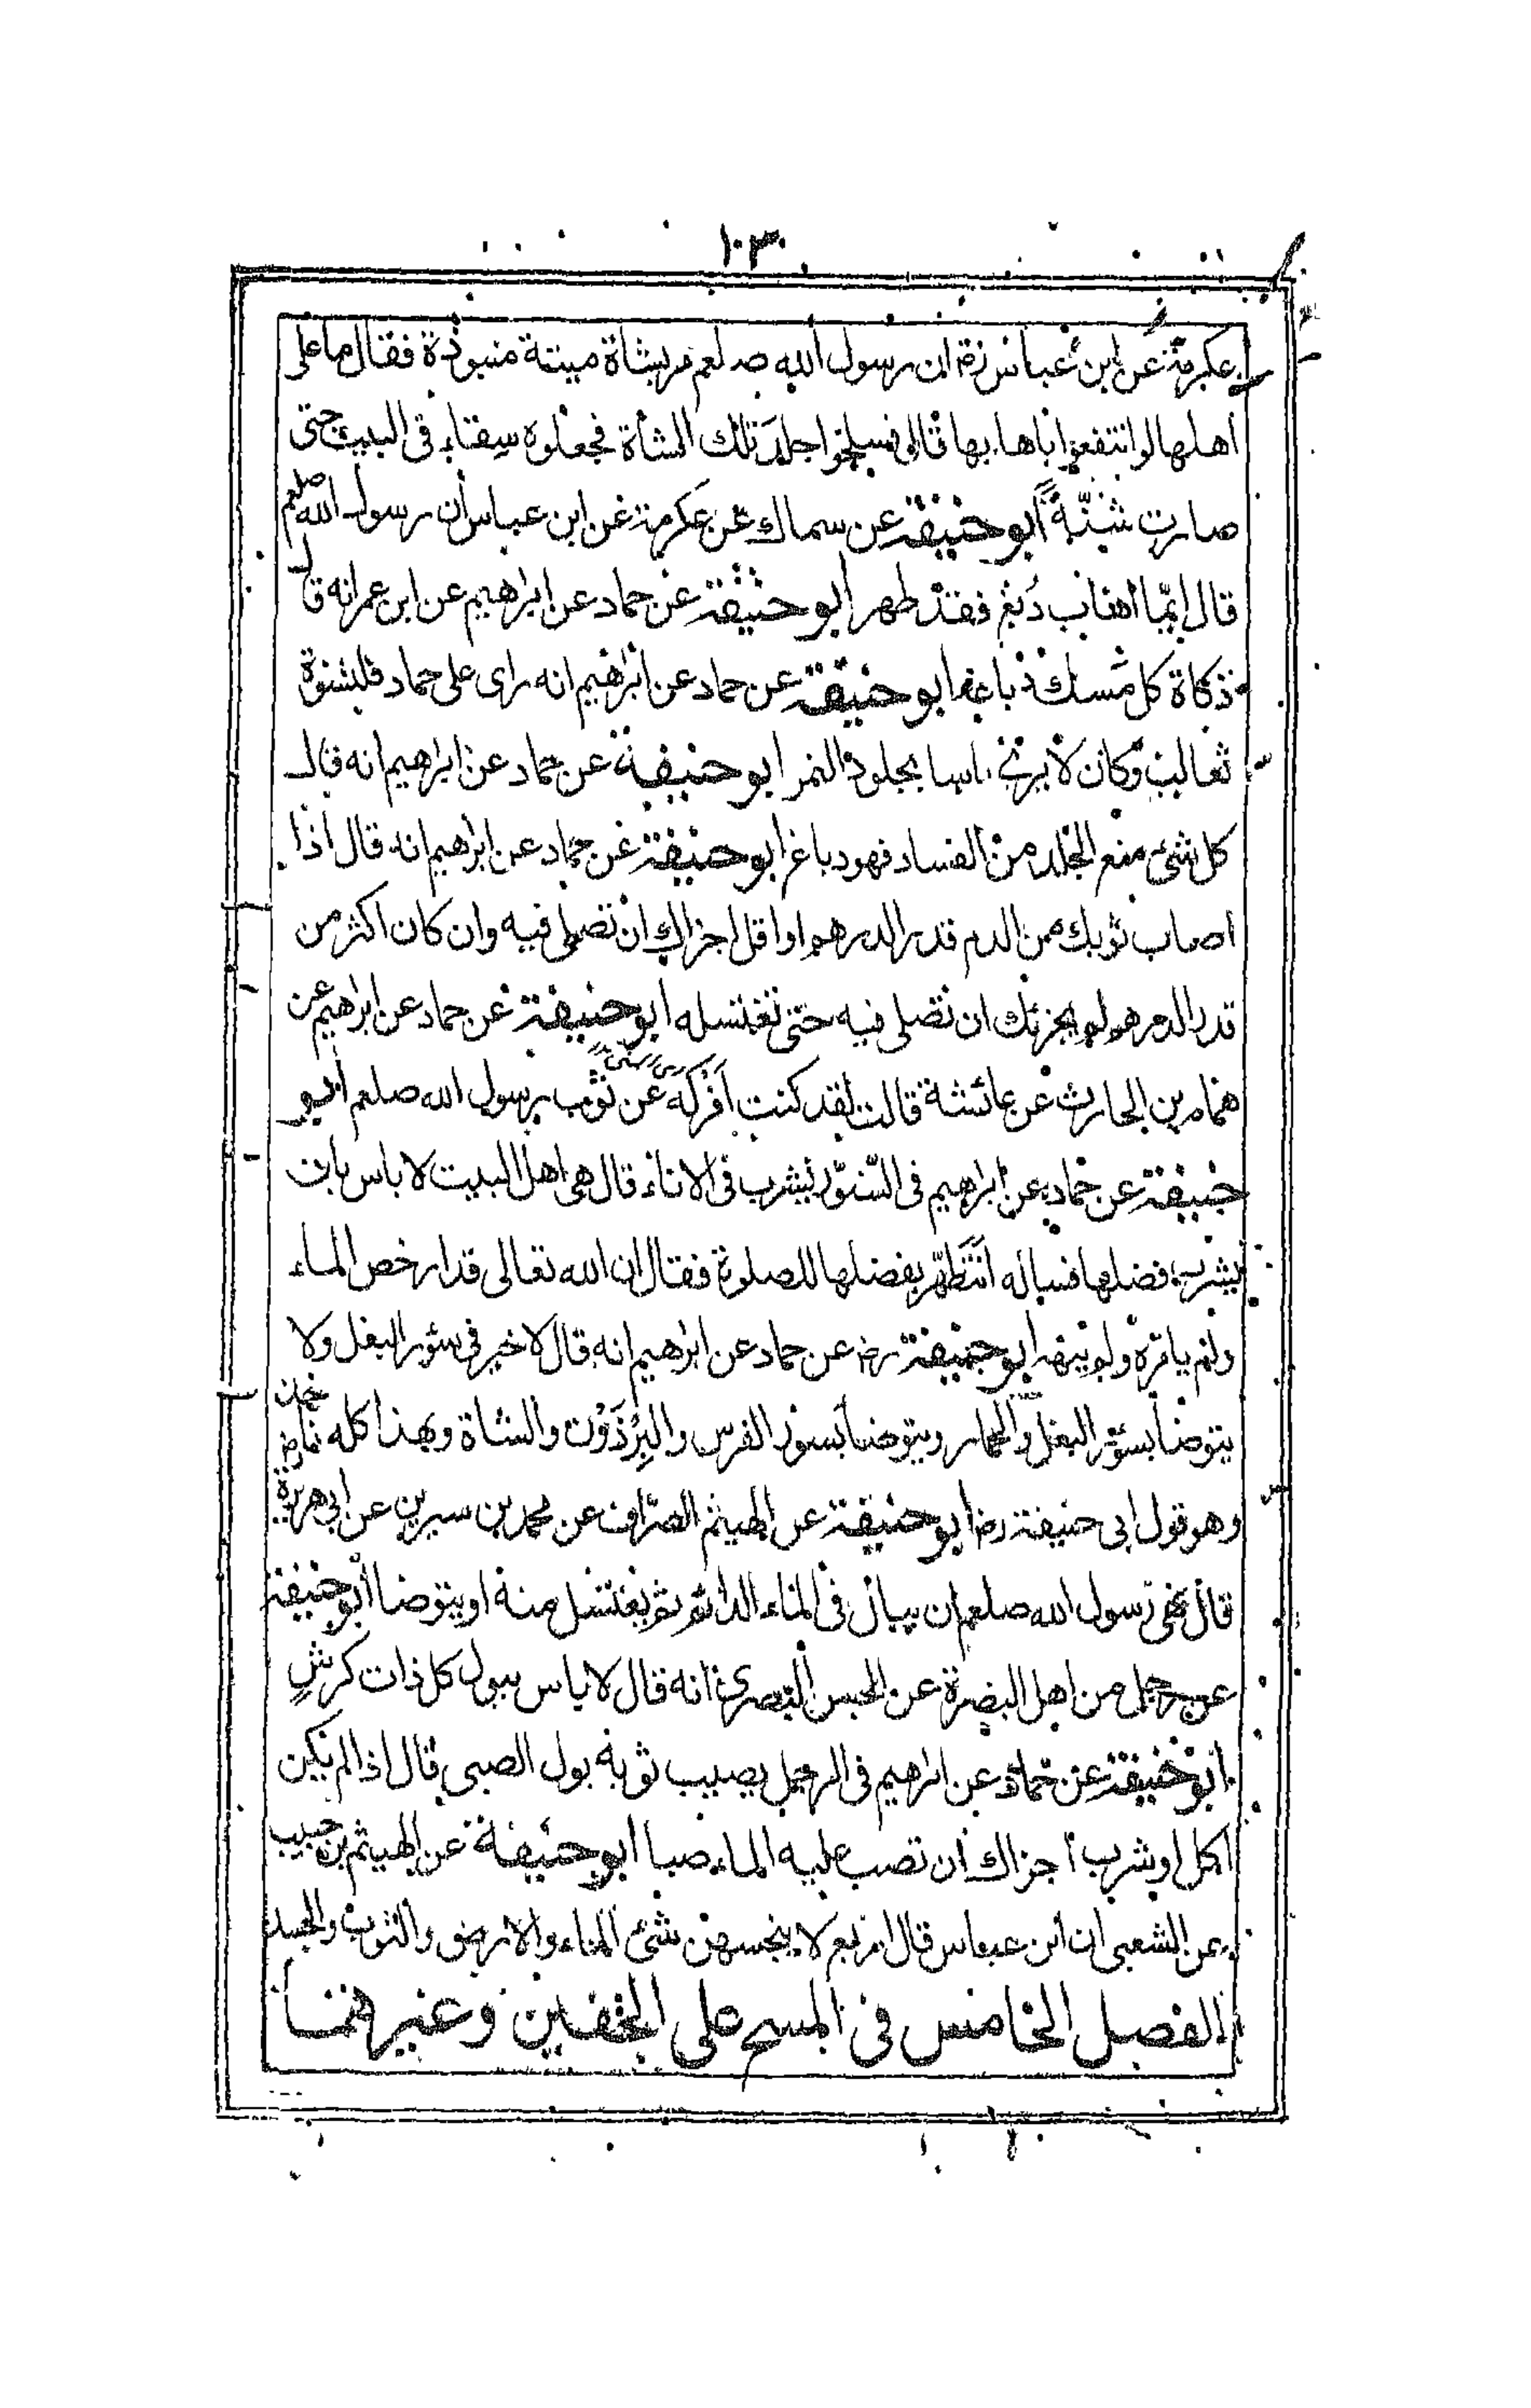 ١٠٣
عكرمة عن ابن عباس رض ان رسول الله صلعم مر بشاة ميتة منبوذة فقال ما على
اهلها لو انتفعوا باهابها قال فسلخوا جلد تلك الشأة فجعلوه سِقاء فى البيت حتى
صارت شَنّةً أبو حنيفة عن سماك عن عكرمة عن ابن عباس أن رسول الله صلعم
قال ايّما اهاب دُبغ فقد طهر ابو حنيفة عن حماد عن ابراهيم عن ابن عمر انه قال
ذكاة كل مَسك دباغه ابو حنيفة عن حماد عن ابراهيم انه راى على حماد قلنسوة
ثعالب وكان لا يرى باسا بجلود النمر ابو حنيفة عن حماد عن ابراهيم انه قال
كل شئ منع الجلد من الفساد فهو دباغ ابو حنيفة عن حماد عن ابراهيم انه قال اذا
اصاب ثوبك من الدم قدر الدرهم او اقل اجزاك ان تصلى فيه وان كان اكثر من
قدر الدرهم لم يجزئك ان تصلى فيه حتى تغتسله ابو حنيفة عن حماد عن ابراهيم عن
همام بن الحارث عن عائشة قالت لقد كنت اَفْركه عن ثوب رسول الله صلعم ابو
حنيفة عن حماد عن ابراهيم فى السّنوّر يشرب فى الاناء قال هى اهل البيت لا باس بان
يشرب فضلها فساله اَتَتَطَهّر بفضلها للصلوة فقال ان الله تعالى قد ارخص الماء
ولم يامره ولم ينهه ابو حنيفة رض عن حماد عن ابراهيم انه قال لا خير فى سئور البغل ولا
يتوضأ بسئور البغل والحمار ويتوضأ بسور الفرس والبِرْذَوْن والشاة وبهذا كله ناخذ
وهو قول ابى حنيفة رض ابو حنيفة عن الهيثم الصرّاف عن محمد بن سيرين عن ابى هريرة
قال نهى رسول الله صلعم ان يبال فى الماء الدائم ثم يغتسل منه او يتوضا ابو حنيفة
عن رجل من اهل البصرة عن الحسن البصرى انه قال لا باس ببول كل ذات كرشٍ
ابو حنيفة عن حماد عن ابراهيم فى الرجل يصيب ثوبه بول الصبى قال اذا لم يكن
اكل او شرب اجزاك ان تصب عليه الماء صبا ابو حنيفة عن الهيثم بن حبيب
عن الشعبى ان ابن عباس قال اربع لا ينجسهن شئ الماء والارض والثوب والجسد
الفصل الخامس فى المسح على الخفين وغيرهما